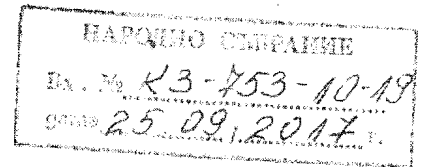 НАРОДНО СЪБРАНИЕ
Вх. № КЗ-753-10-19
дата 25.09.2017 г.